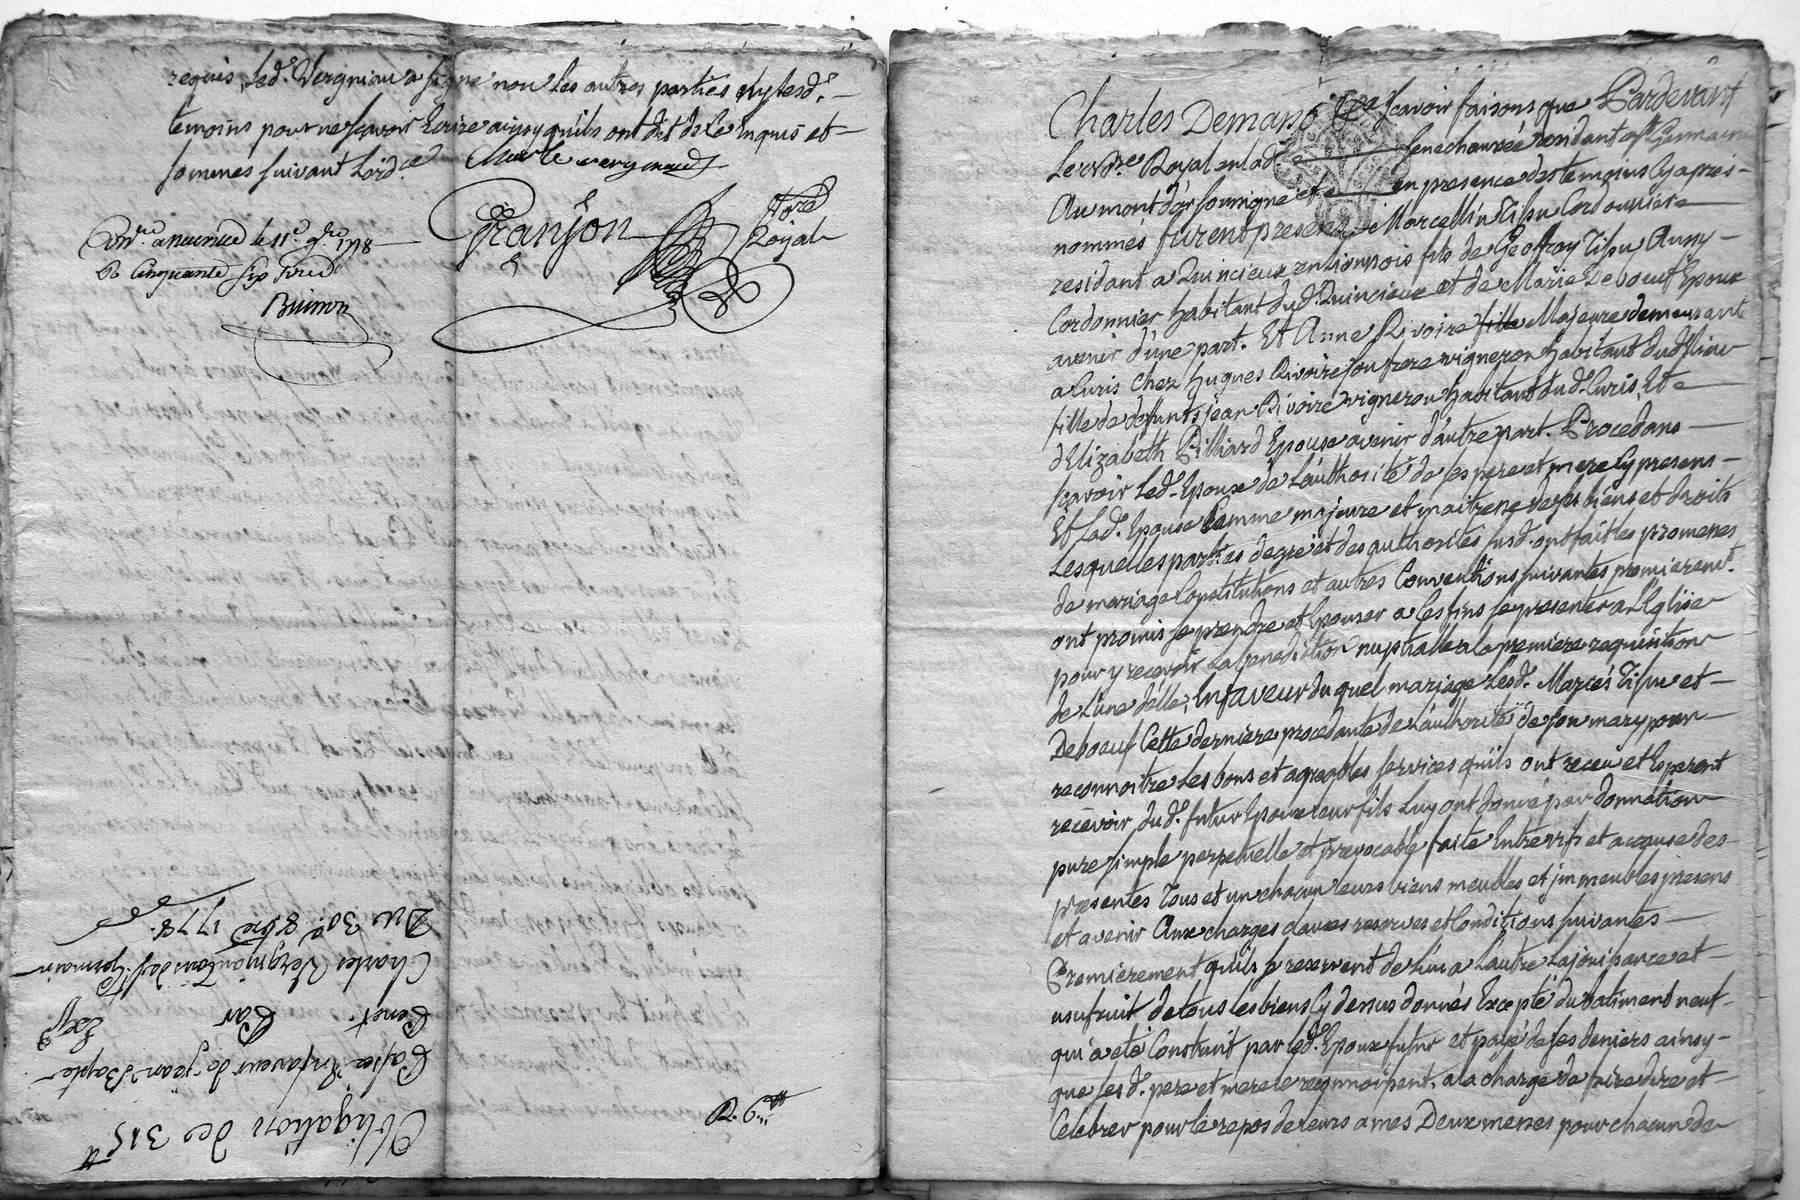 requis, Led.t Vergniau a signé non les autres parties ny lesd.t
temoins pour ne sçavoir Ecrire ainsy quils ont dit de Ce Enquis et
sommés suivant Lord.ce Charle vergniaud
Granjon No.re Royal
Con.lé a neuville le 11.e 9.bre 1778
Rc Cinquante six sous
Obligation de 315.tt
Passée En faveur de jean Baptê
Benet. Par
Charles Vergniau Tois de S.t Germain
Du 30.e 8bre 1778.
Exp.é
Charles Demans Sçavoir faisons que Pardevant
Le No.re Royal en lad. Senechaussée residant a S.t Germain
Au mont d'or soussigné et en presence des temoins Cy apres
nommés furent presens Marcellin Tisu Cordonnier
residant a Quincieux en Lionnois fils de Geoffray Tisu Aussy
Cordonnier habitant dud. Quincieux et de Marie Deboeuf Epoux
avenir d'une part. Et Anne Rivoire fille Majeure demeurante
a Curis Chez hugues Rivoire son frere vigneron habitant dud. lieu
fille de defunts jean Rivoire vigneron habitant dud. Curis, Et
d'Elizabeth Pilliard Epouse avenir d'autre part. Procedans
sçavoir Led. Epoux de L'authorité de ses pere et mere Cy presens
Et Lad. Epouse Comme majeure et maitresse de ses biens et droits
Lesquelles parties de gré et des authorités susd. ont fait les promesses
de mariage Constitutions et autres Conventions suivantes premierem.t
ont promis se prendre et Epouser a Ces fins se presenter a L'Eglise
pour y recevoir La benediction nuptialle a la premiere requisition
de L'une d'elle, En faveur du quel mariage Lesd. Mariés Tisu et
Deboeuf Cette derniere procedante de L'authorité de son mary pour
reconnoitre Les bons et agreables services quils ont receu et Esperent
recevoir dud. futur Epoux leur fils Luy ont donné par donnation
pure simple perpetuelle et jrrevocable faite Entre vifs et a cause des
presentes Tous et un chacun leurs biens meubles et jmmeubles presens
et avenir Aux charges clauses reserves et Conditions suivantes
Premierement quils se reservent de L'un a L'autre La jouissance et
usufruit de tous les biens Cy dessus donnés Excepté du batiment neuf
qui a eté Construit par led. Epoux futur et payé de ses deniers ainsy
que lesd. pere et mere le reconnoissent, a la charge de faire dire et
Celebrer pour le repos de leurs ames Deux messes pour chacun de